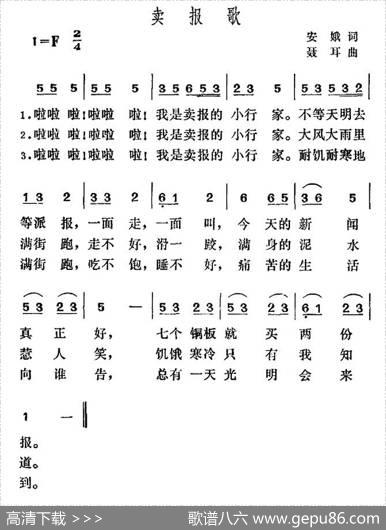 卖报歌
1=F 2/4
安娥 词
聂耳 曲
5 5 5 | 5 5 5 | 3 5 6 5 3 | 2 3 5 | 5 3 2 3 | 5 3 2
1.啦啦 啦!啦啦 啦!我是卖报的 小行 家。不等天明去
2.啦啦 啦!啦啦 啦!我是卖报的 小行 家。大风大雨里
3.啦啦 啦!啦啦 啦!我是卖报的 小行 家。耐饥耐寒地
1 3 2 | 3 3 2 | 6 1 2 | 6 6 5 | 3 6 5
等派 报,一面 走,一面 叫,今天的 新闻
满街 跑,走不 好,滑一 跤,满身的 泥水
满街 跑,吃不 饱,睡不 好,痛苦的 生活
5 3 2 3 | 5 — | 5 3 2 3 | 5 3 2 3 | 6 1 2 3
真正 好,七个 铜板 就买 两份
惹人 笑,饥饿 寒冷 只有 我知
向谁 告,总有 一天 光明 会来
1 —
报。
道。
到。
高清下载 >>>
歌谱八六 www.gepu86.com